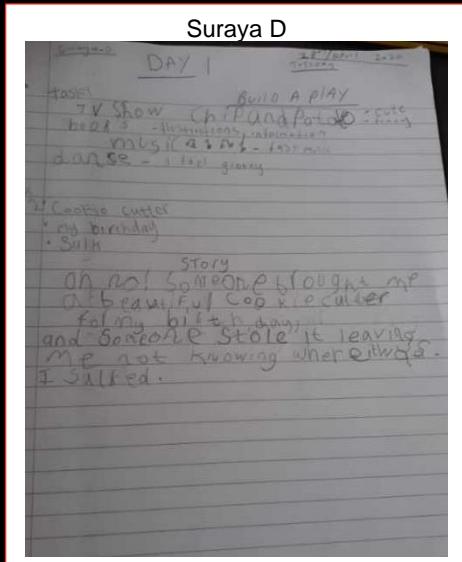 Suraya D
Suraya.D
28th April 2020
DAY 1
Tuesday
task 1
BUILD A PLAY
TV Show Chip and Potato : cute
: funny
books - illustrations, information
music - fast music
danse - i feel groovy
2) Cookie cutter
• my birthday
• Sulk
Story
oh no! Someone brought me
a beautiful cookie cutter
for my birthday,
and Someone Stole it leaving
me not Knowing where it was.
I Sulked.